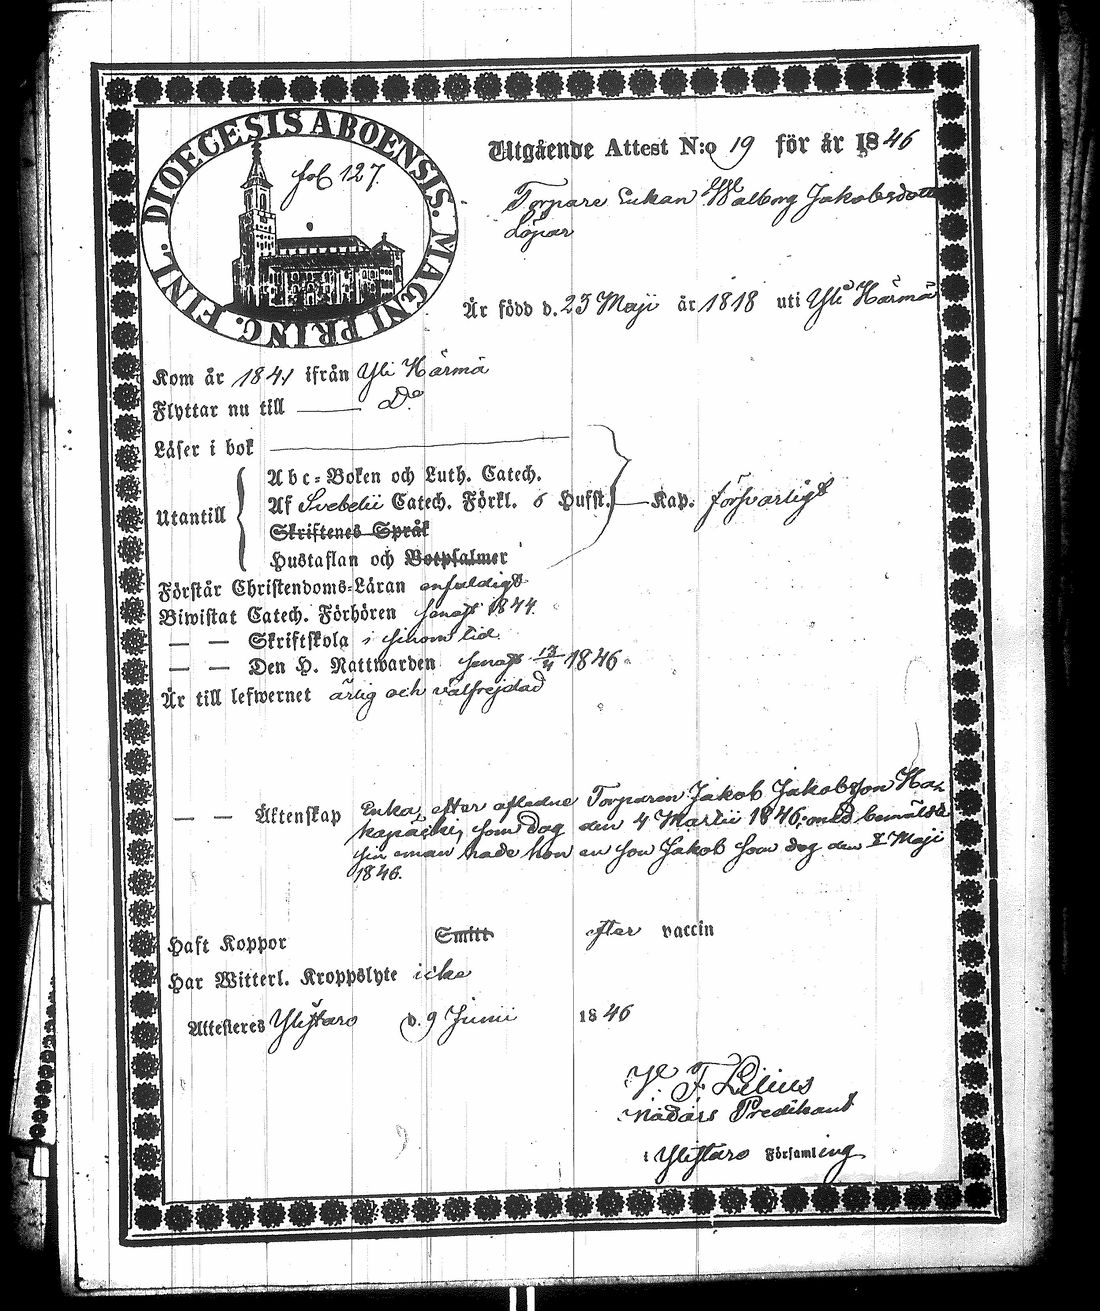 DIOECESIS ABOENSIS. MAGNI PRINC. FINL.
fol 127.
Utgående Attest N:o 19 för år 1846
Torpare Enkan Walborg Jakobsdotter
Löpar
Är född d. 23 Maji år 1818 uti Yli Härmä
Kom år 1841 ifrån Yli Härmä
Flyttar nu till —— Do
Läser i bok
Abc-Boken och Luth. Catech.
Utantill Af Svebelii Catech. Förkl. 6 Hufst. — Kap. försvarligt
Skriftenes Språk
Hustaflan och Botpsalmer
Förstår Christendoms-Läran enfaldigt
Biwistat Catech. Förhören senast 1844
— — Skriftskola i sinom tid
— — Den H. Nattwarden senast 13/4 1846
Är till lefwernet ärlig och välfrejdad
— — Äktenskap Enka, efter afledne Torparen Jakob Jakobsson Ha-
kapäcki, som dog den 4 Martii 1846; med bemälde
sin man hade hon en son Jakob som dog den 2 Maji
1846.
Haft Koppor Smitt efter vaccin
Har Witterl. Kroppslyte icke
Attesteras Ylistaro d. 9 Junii 1846
F. Lilius
Nådårs Predikant
i Ylistaro Församling